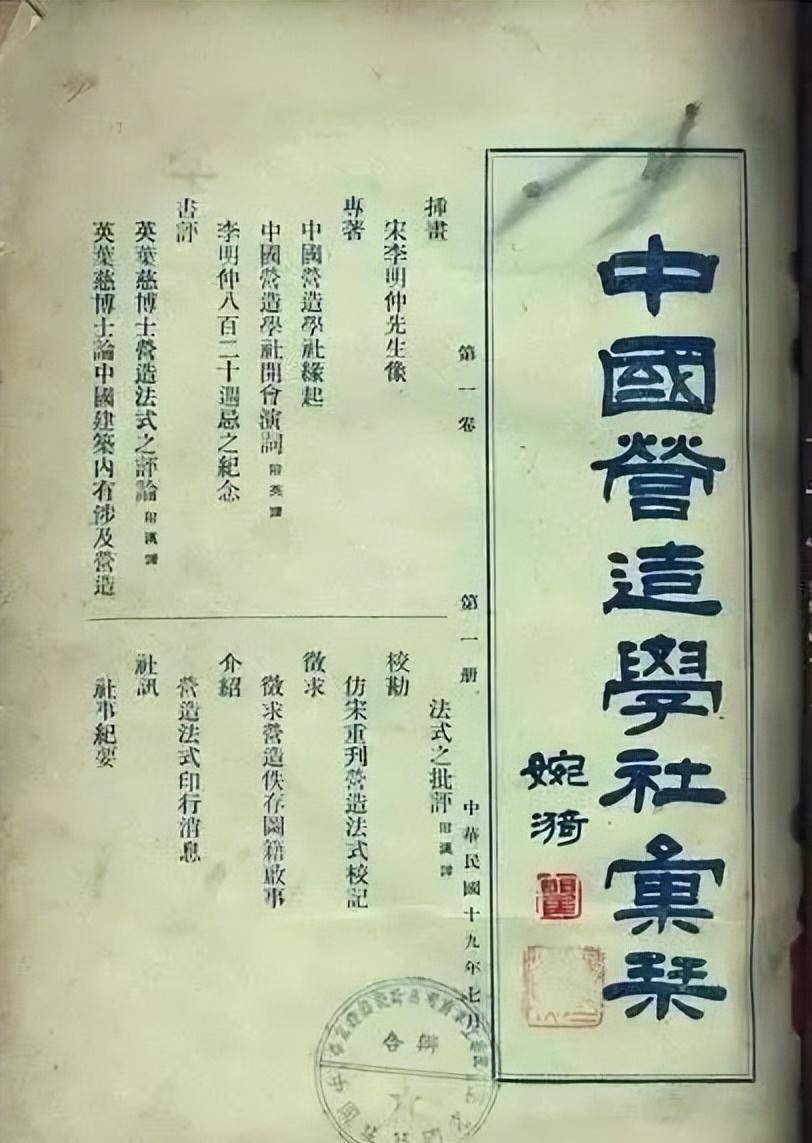 中國營造學社彙栞
婉漪
第一卷 第一册 中華民國十九年七月
插畫
宋李明仲先生像
專著
中國營造學社緣起
中國營造學社開會演詞 附英譯
李明仲八百二十週忌之紀念
書評
英葉慈博士營造法式之評論 附漢譯
英葉慈博士論中國建築內有涉及營造
法式之批評 附漢譯
校勘
仿宋重刊營造法式校記
徵求
徵求營造佚存圖籍啟事
介紹
營造法式印行消息
社訊
社事紀要